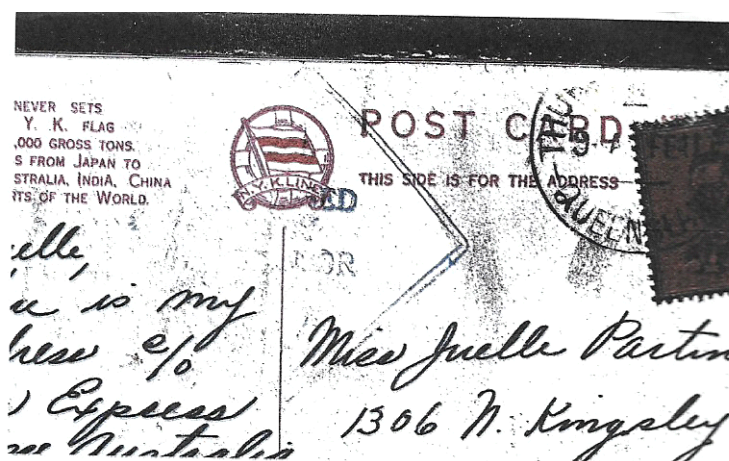 NEVER SETS
Y. K. FLAG
,000 GROSS TONS.
S FROM JAPAN TO
STRALIA, INDIA, CHINA
TS OF THE WORLD.
N.Y.K. LINE
POST CARD
THIS SIDE IS FOR THE ADDRESS
THU
QUEEN
elle,
is my
ress c/o
Express
Australia
Miss Juelle Partin
1306 N. Kingsley